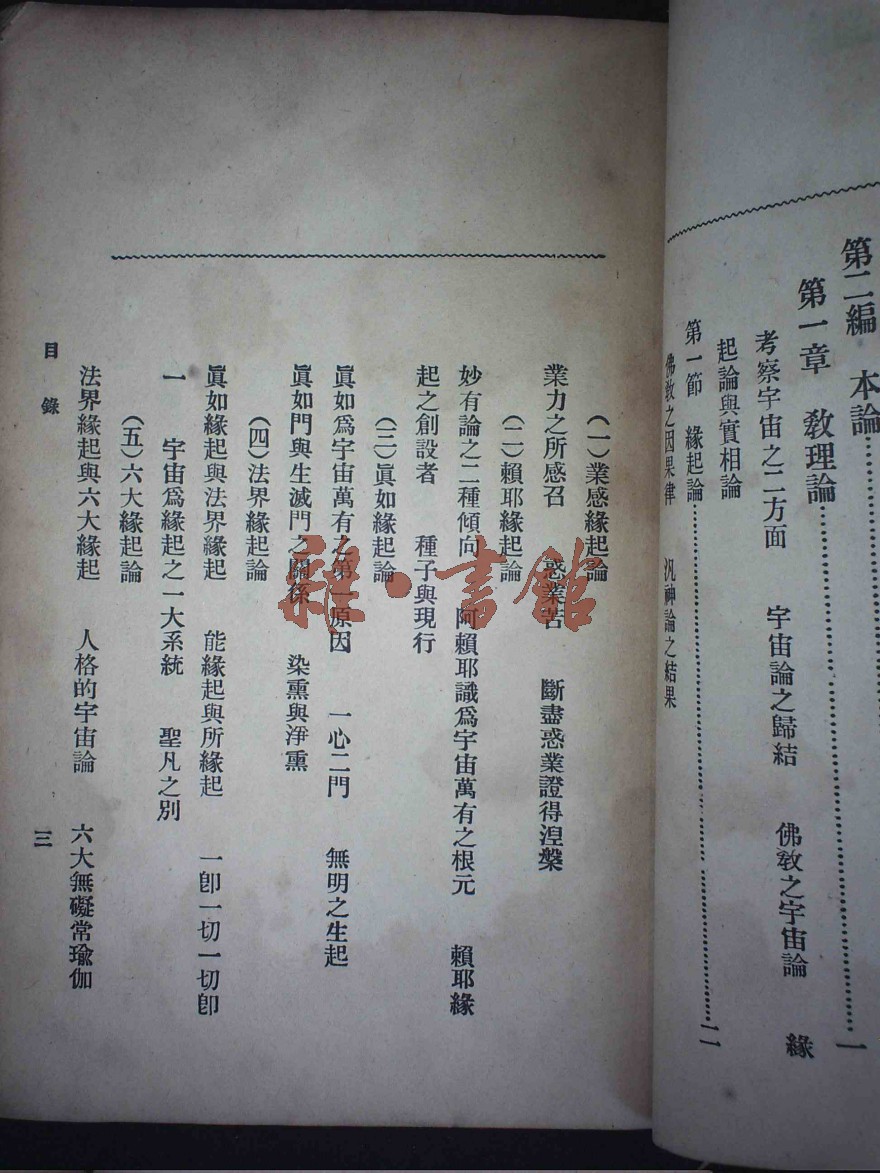 第二編　本論…………一
第一章　敎理論…………
考察宇宙之二方面　宇宙論之歸結　佛敎之宇宙論　緣
起論與實相論
第一節　緣起論…………二
佛敎之因果律　汎神論之結果
（一）業感緣起論
業力之所感召　惑業苦　斷盡惑業證得涅槃
（二）賴耶緣起論
妙有論之二種傾向　阿賴耶識爲宇宙萬有之根元　賴耶緣
起之創設者　種子與現行
（三）眞如緣起論
眞如爲宇宙萬有之第一原因　一心二門　無明之生起
眞如門與生滅門之關係　染熏與淨熏
（四）法界緣起論
眞如緣起與法界緣起　能緣起與所緣起　一卽一切一切卽
一　宇宙爲緣起之一大系統　聖凡之別
（五）六大緣起論
法界緣起與六大緣起　人格的宇宙論　六大無礙常瑜伽
目錄
三
雜·書館